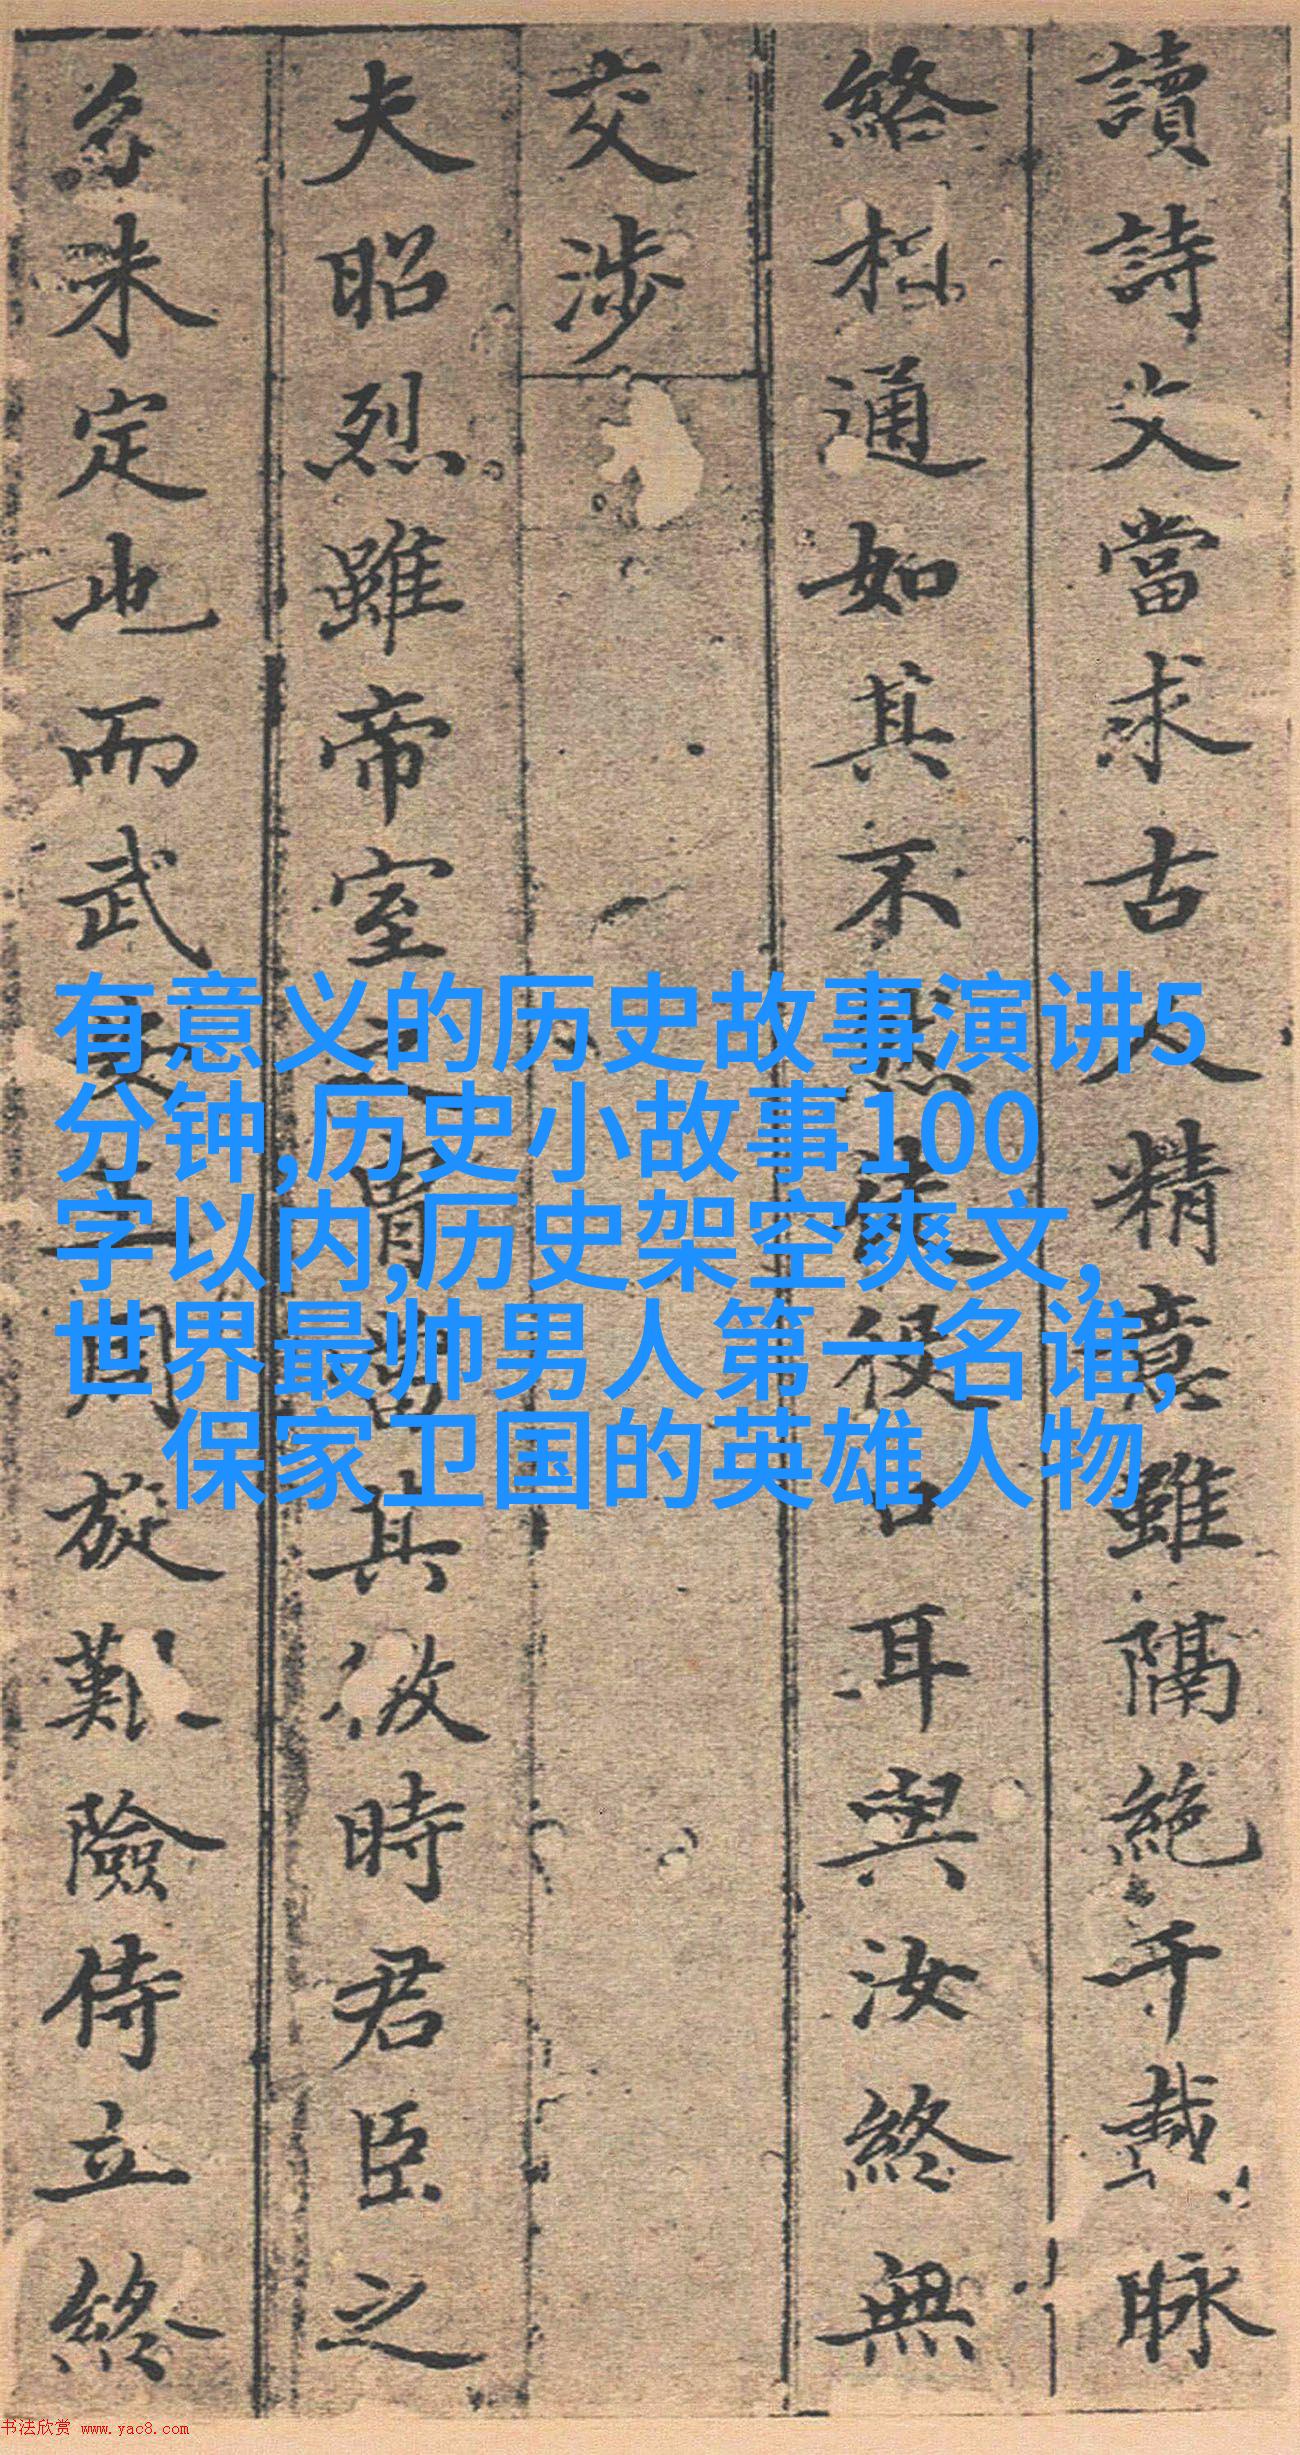 讀詩文當求古人精意雖隔絶千載脉
絡相通如其不然僕役台耳與汝終無
交涉
夫昭烈雖帝室之胄當其微時君臣之
名未定也而武侯主周旋艱險侍立終
有意义的历史故事演讲5
分钟,历史小故事100
字以内,历史架空爽文,
世界最帅男人第一名谁,
保家卫国的英雄人物
书法欣赏 www.yac8.com